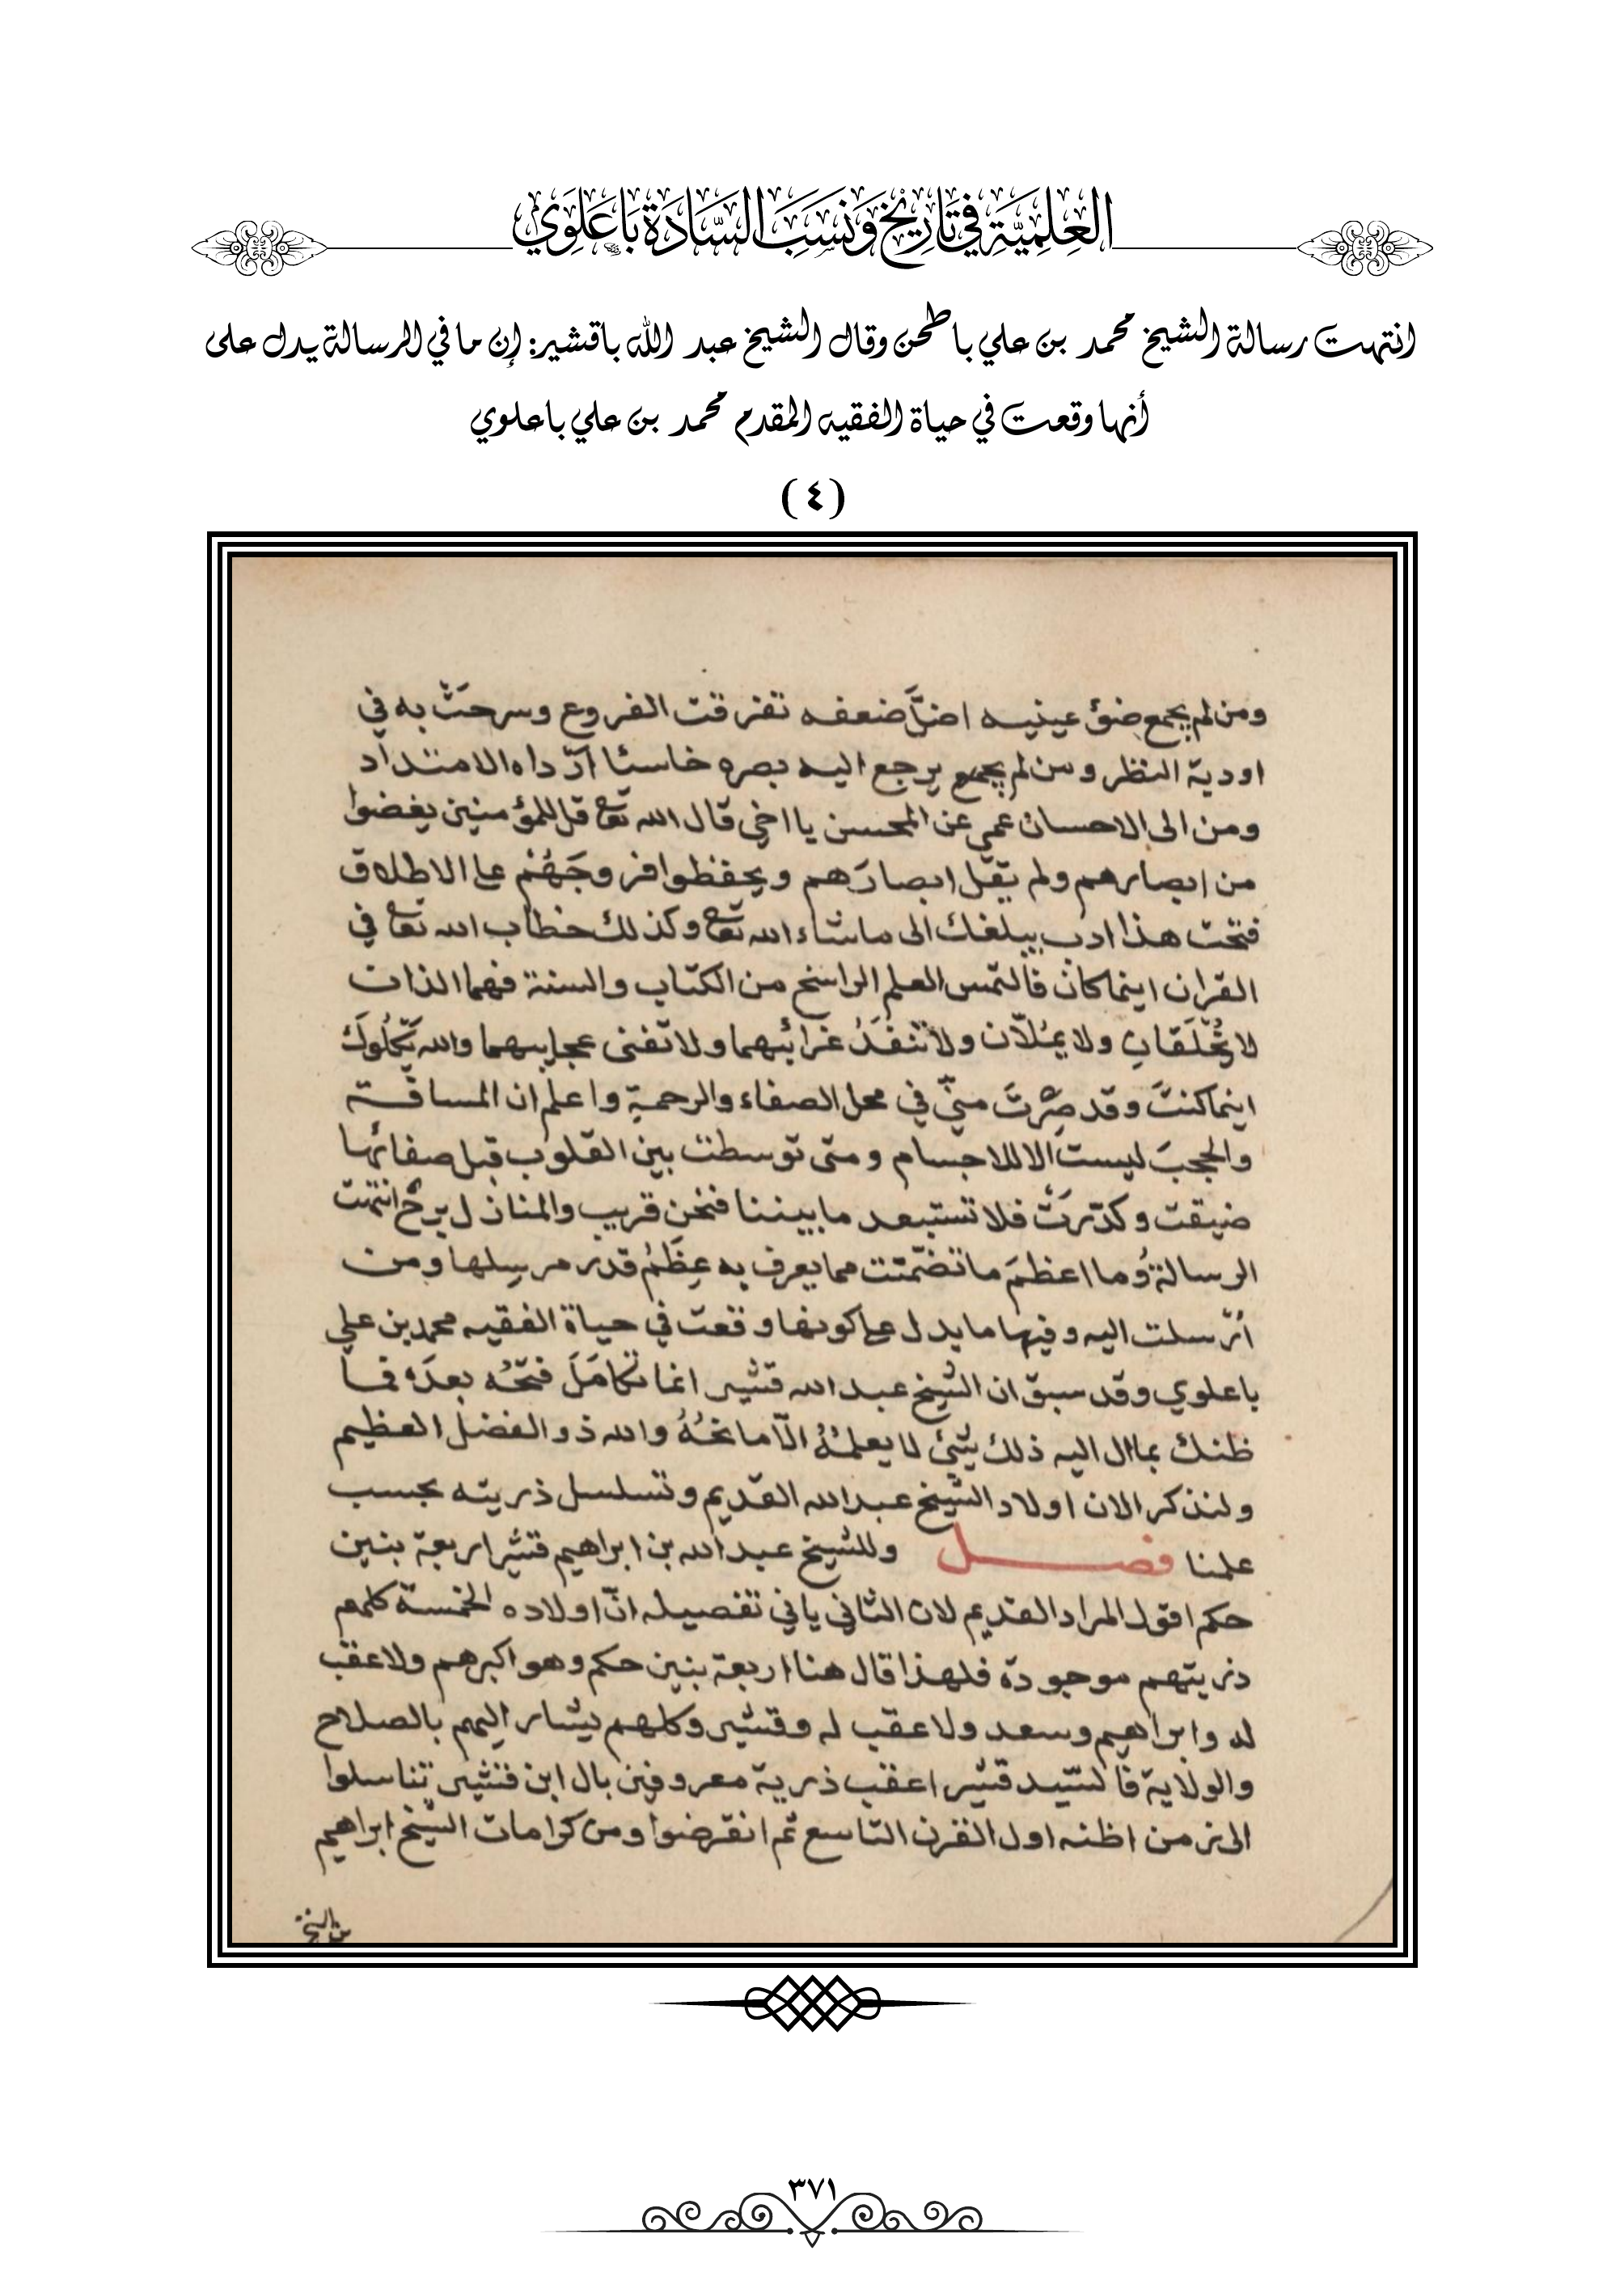 العِلمِيَّةِ فِي تَارِيْخِ وَنَسَبِ السَّادَةِ بَاعَلَوِي
انتهت رسالة الشيخ محمد بن علي باطحن وقال الشيخ عبد الله باقشير: إن ما في الرسالة يدل على
أنها وقعت في حياة الفقيه المقدم محمد بن علي باعلوي
(٤)
ومن لم يجمع ضوَّ عينيه اضرَّ ضعفه تفرقت الفروع وسرحَتْ به في
اودية النظر ومن لم يجمع يرجع اليه بصره خاسئا ادّاه الامتداد
ومن الى الاحسان عمي عن المحسن يا اخي قال الله تعا قل للمؤمنين يغضوا
من ابصارهم ولم يقل ابصارَهم ويحفظوا فروجَهُمْ على الاطلاق
فتحت هذا ادب يبلغك الى ما شاء الله تعا وكذلك خطاب الله تعا في
القران اينما كان فالتمس العلم الراسخ من الكتاب والسنة فهما الذان
لا يُخْلَقانِ ولا يمُلّان ولا تنفَدُ غرائبهما ولا تفنى عجايبهما والله يَكْلُوكَ
اينما كنتَ وقد صِرْتَ منّي في محل الصفاء والرحمة واعلم ان المسافة
والحجبَ ليست الا للاجسام ومتى توسطت بين القلوب قبل صفائها
ضيقت وكدّرَتْ فلا تستبعد ما بيننا فنحن قريب والمنازل برخ انتهت
الرسالةُ وما اعظمَ ما تضمّنت مما يعرف به عِظَمُ قدر مرسِلها ومن
أُرسلت اليه وفيها ما يدل على كونها وقعت في حياة الفقيه محمد بن علي
باعلوي وقد سبق ان الشيخ عبد الله قشير انما تكامَلَ فتحُه بعدَه فما
ظنك بما ال اليه ذلك شيئ لا يعلمُهُ الّا مانحُهُ والله ذو الفضل العظيم
ولنذكر الان اولاد الشيخ عبد الله القديم وتسلسل ذريته بحسب
علمنا فصل وللشيخ عبد الله بن ابراهيم قشير اربعة بنين
حكم اقول المراد القديم لان الثاني ياتي تفصيله انّ اولاده الخمسة كلهم
ذريتهم موجودة فلهذا قال هنا اربعة بنين حكم وهو اكبرهم ولا عقب
له وابراهيم وسعد ولا عقب له وقشير وكلهم يشار اليهم بالصلاح
والولاية فالسّيد قشير اعقب ذرية معروفين بال ابن قشير تناسلوا
الى زمن اظنه اول القرن التاسع ثم انقرضوا ومن كرامات الشيخ ابراهيم
بن الشيخ
٣٧١